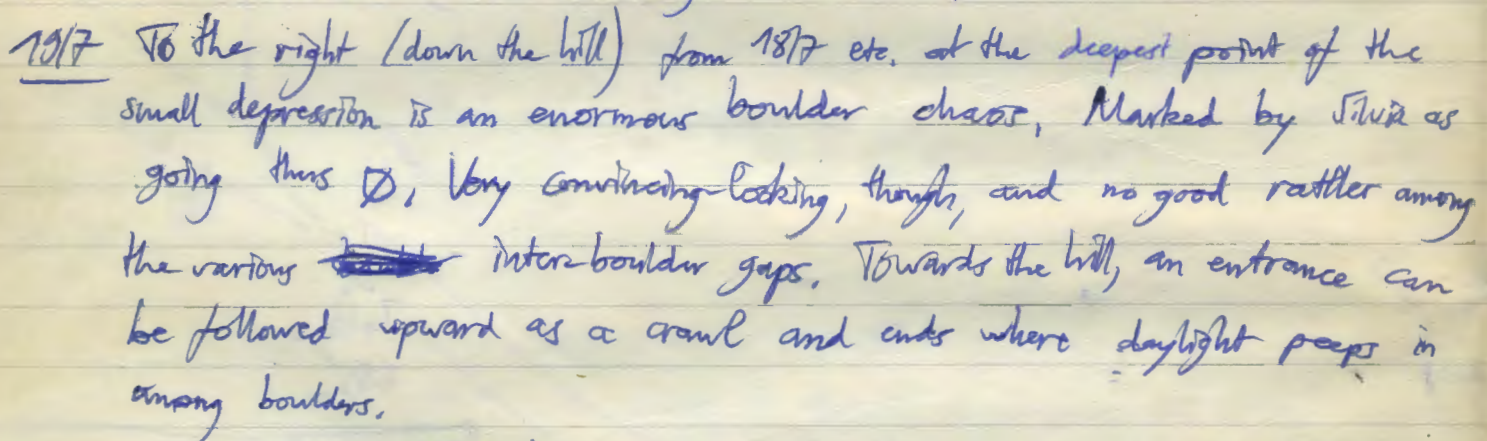 19/7 To the right (down the hill) from 18/7 etc. at the deepest point of the
small depression is an enormous boulder chaos. Marked by Silvia as
going thus Ø. Very convincing-looking, though, and no good rattler among
the various inter-boulder gaps. Towards the hill, an entrance can
be followed upward as a crawl and ends where daylight peeps in
among boulders.